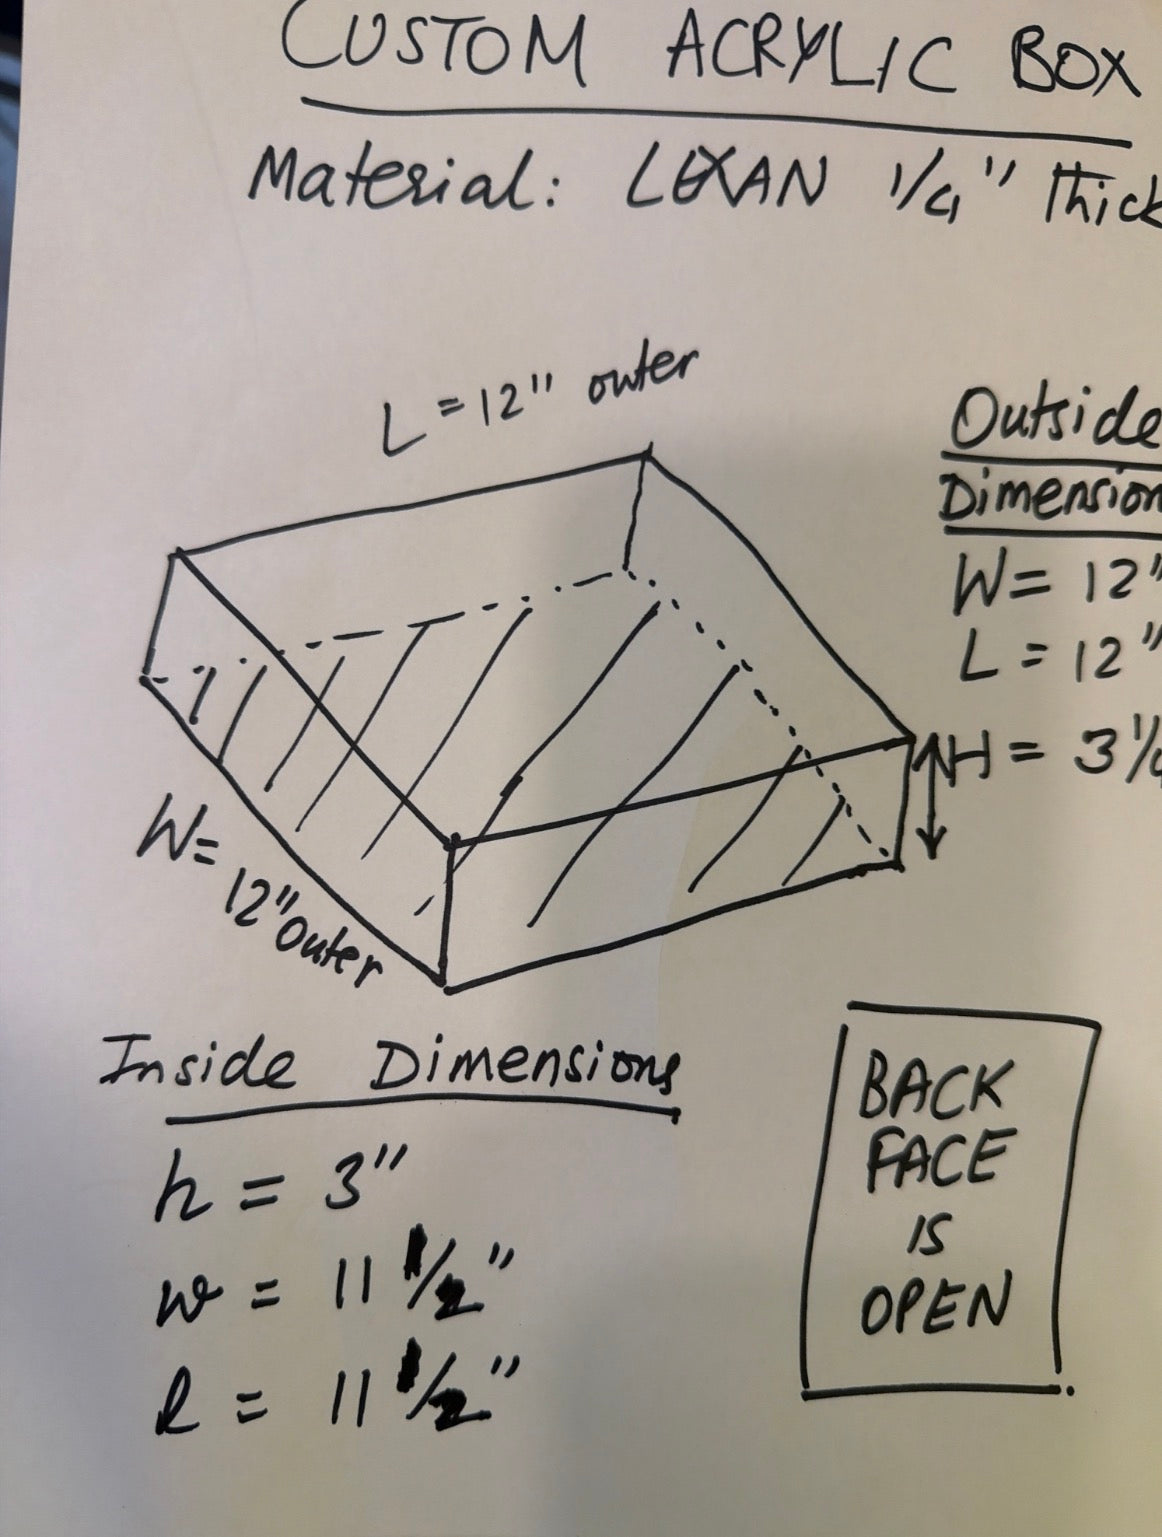 CUSTOM ACRYLIC BOX
Material: LEXAN 1/4" Thick
L = 12" outer
Outside
Dimension
W = 12"
L = 12"
H = 3 1/
W =
12" outer
Inside Dimensions
h = 3"
w = 11 1/2"
l = 11 1/2"
BACK
FACE
IS
OPEN